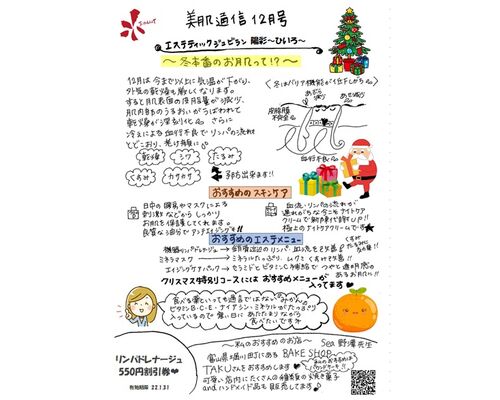 美肌通信12月号
エステティックジュビラン 陽彩〜ひいろ〜
〜冬本番のお肌って!?〜
12月は今まで以上に気温が下がり、
外気の乾燥も厳しくなります。
すると肌表面の皮脂量が減り、
肌内部のうるおいがうばわれて
乾燥が深刻化 さらに
冷えによる血行不良でリンパの流れも
とどこおり、老け顔に
乾燥 シワ たるみ
くすみ カサカサ
予防出来ます!!
冬はバリア機能が低下しがち
皮脂膜
不完全
血行不良
おすすめのスキンケア
日中の暖房やマスクによる
刺激などからしっかり
お肌を保護してくれます。
血流・リンパの流れが
遅れがちな今こそナイトケア
クリームで新陳代謝UP!!
極上のナイトクリームです★
おすすめのエステメニュー
機械リンパドレナージュ
ミネラルマスク → ミネラルたっぷり。ムクミくすけマスク!!
エイジングケアパック → セラミドとビタミンC補給でつやと透明感の
あるお肌に!!
クリスマス特別コースにはおすすめメニューが
入ってます♥
食べる薬といっても過言ではないみかん。
ビタミンB・C・E・ナイアシン・ミネラルがたっぷり
入っているので寒い日にあたたまりながら
食べたいです
リンパドレナージュ
550円割引券♥
有効期限 22.1.31
〜私のおすすめのお店〜 Sea 野澤先生
富山県 堀川町にある BAKE SHOP
TAKUさんをおすすめします♥
可愛い店内にたくさんの種類の焼き菓子
and ハンドメイド品も販売してます♪
私のおすすめは
パウンドケーキ!!